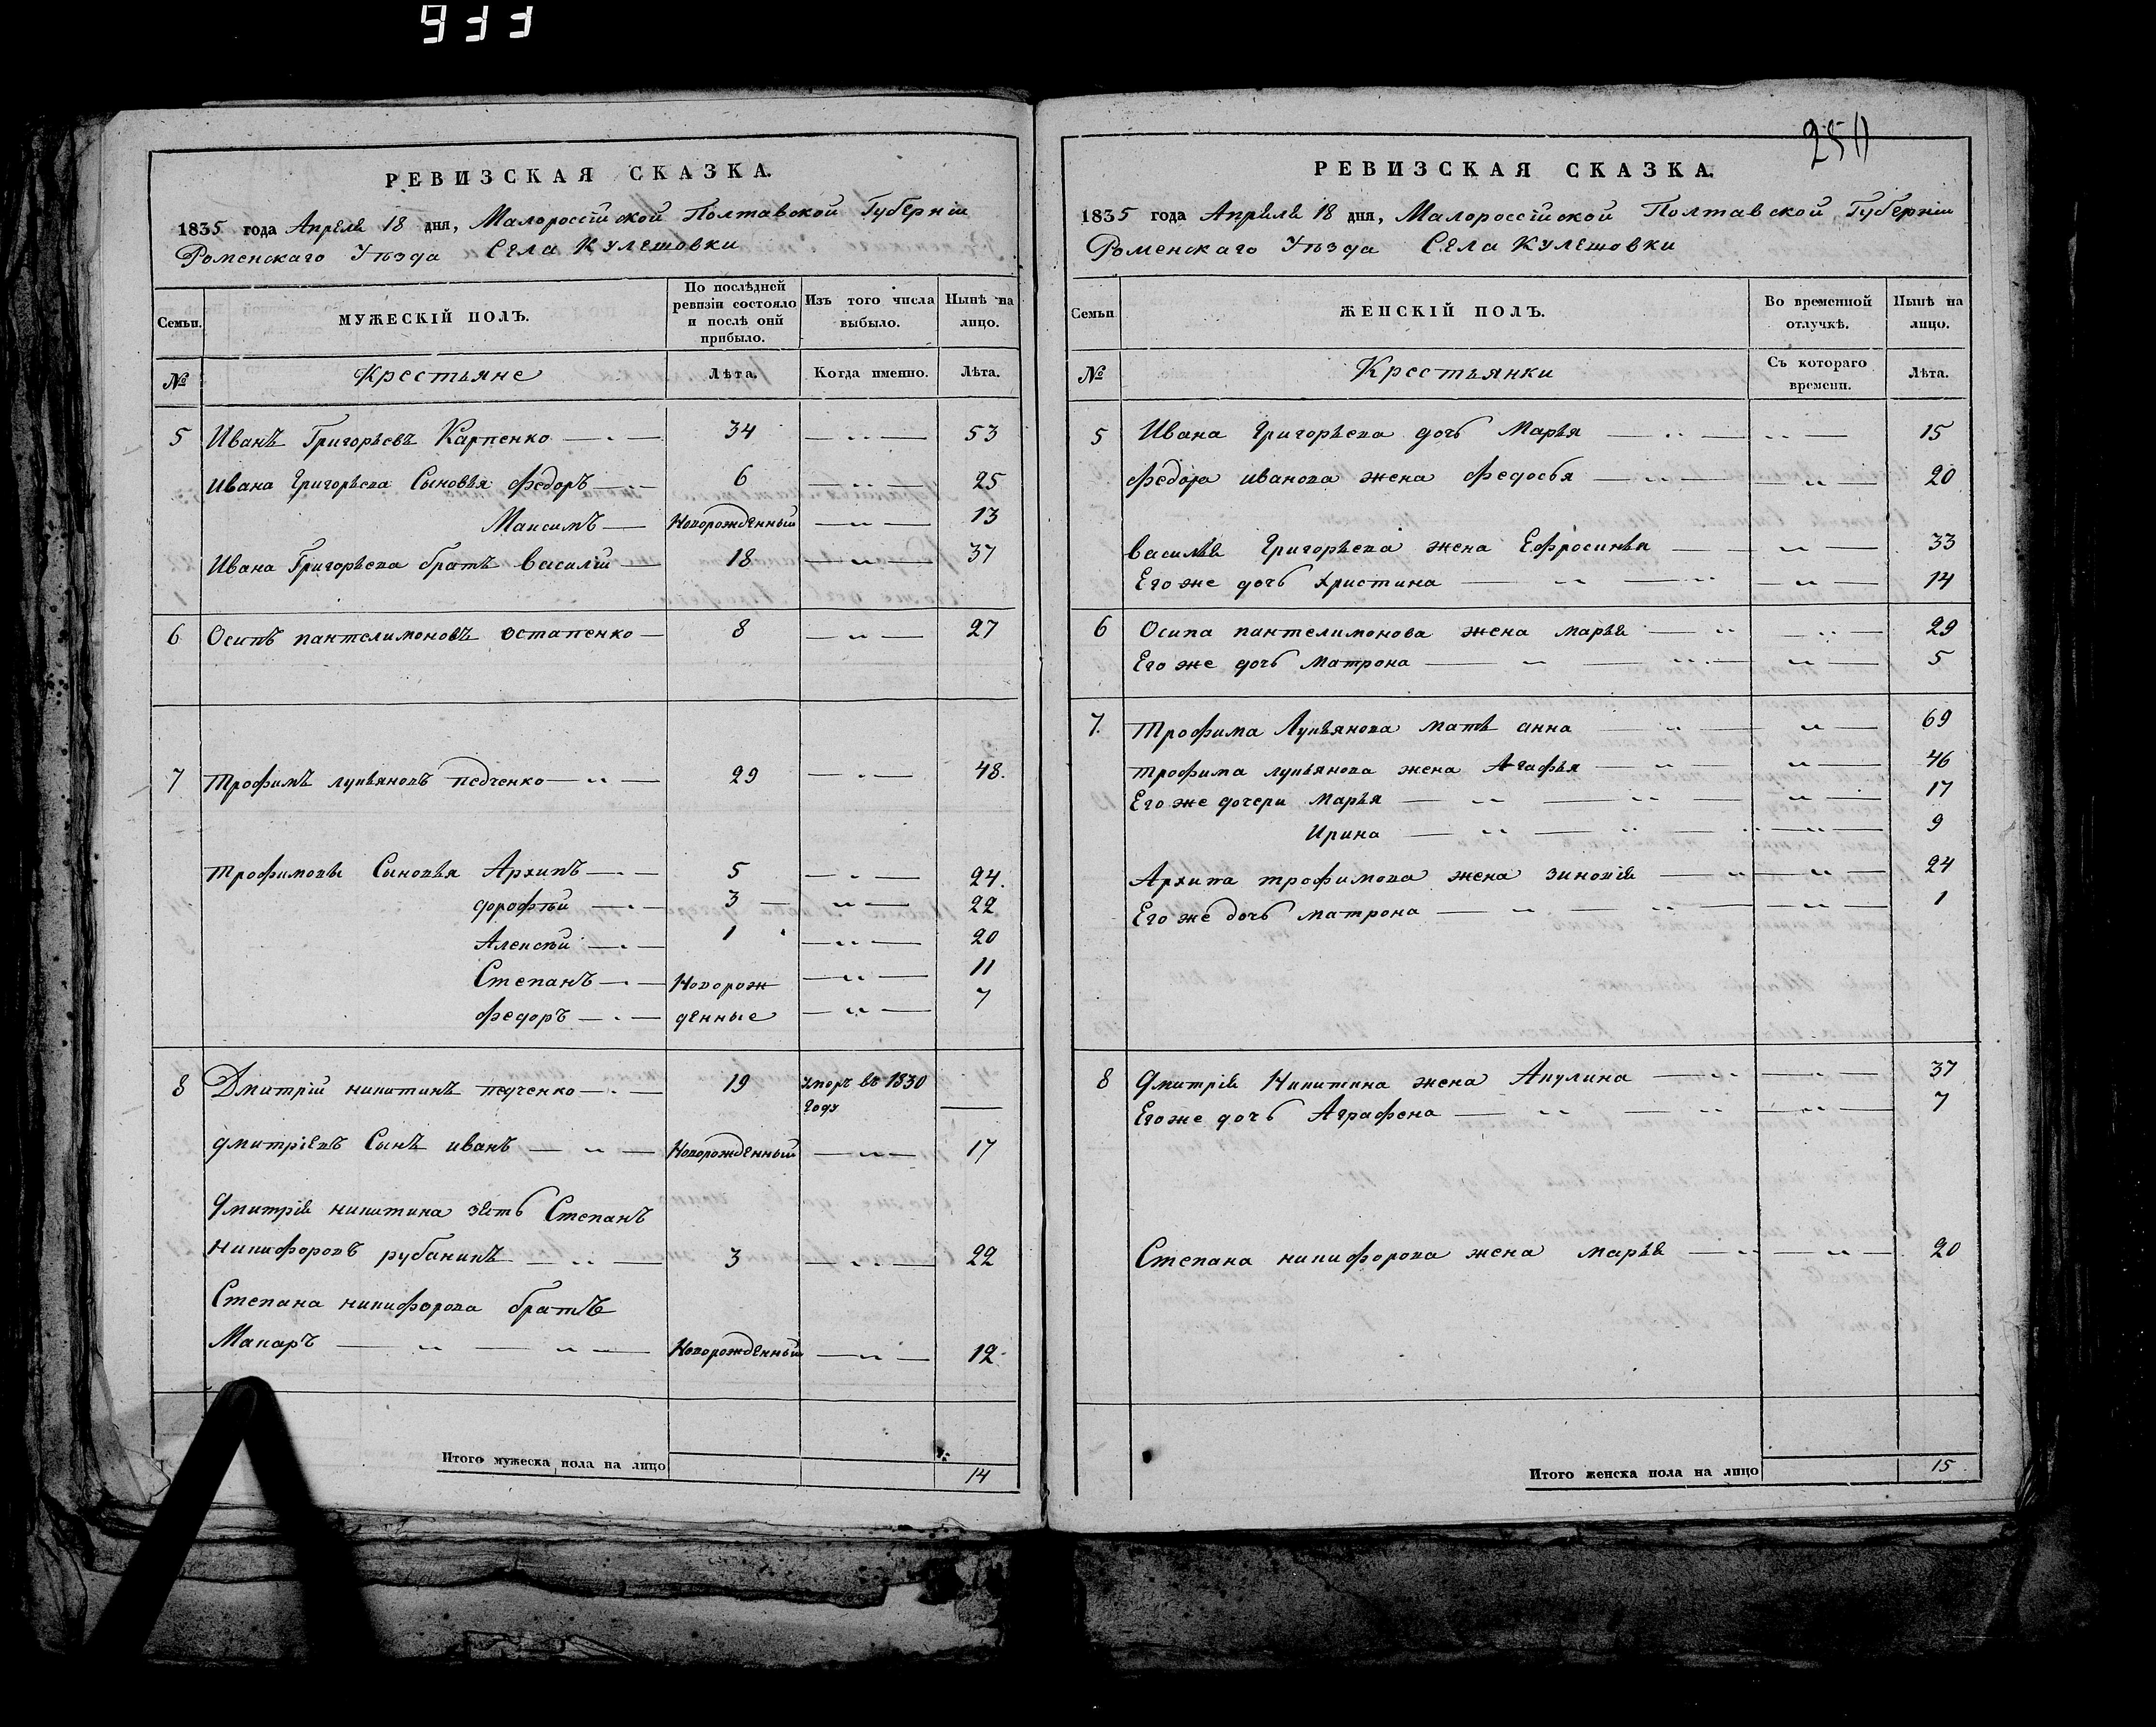 933
РЕВИЗСКАЯ СКАЗКА.
1835 года Апреля 18 дня, Малороссійской Полтавской Губерніи
Роменскаго Уѣзда Села Кулешовки
Семьи.
МУЖЕСКІЙ ПОЛЪ.
По послѣдней
ревизіи состояло
и послѣ оной
прибыло.
Изъ того числа
выбыло.
Нынѣ на
лицо.
№
Крестьяне
Лѣта.
Когда именно.
Лѣта.
5 Иванъ Григорьевъ Карпенко 34 53
Ивана Григорьева Сыновья Федоръ 6 25
Максимъ Новорожденный 13
Ивана Григорьева братъ Василій 18 37
6 Осипъ пантелимоновъ остапенко 8 27
7 Трофимъ лукьяновъ педченко 29 48.
Трофимовы Сыновья Архипъ 5 24.
дорофѣй 3 22
Алексѣй 1 20
Степанъ Новорож 11
Федоръ денные 7
8 Дмитрій никитинъ педченко 19 умеръ въ 1830
году
дмитріевъ Сынъ иванъ Новорожденный 17
дмитрія никитина зять Степанъ
никифоровъ рубаникъ 3 22
Степана никифорова братъ
Макаръ Новорожденный 12
Итого мужеска пола на лицо 14
250
РЕВИЗСКАЯ СКАЗКА.
1835 года Апрѣля 18 дня, Малороссійской Полтавской Губерніи
Роменскаго Уѣзда Села Кулешовки
Семьи
ЖЕНСКІЙ ПОЛЪ.
Во временной
отлучкѣ.
Нынѣ на
лицо.
№
Крестьянки
Съ котораго
времени.
Лѣта.
5 Ивана Григорьева дочь Марья 15
Федора иванова жена Федосья 20
василья Григорьева жена Ефросинья 33
Его же дочь христина 14
6 Осипа пантелимонова жена марья 29
Его же дочь матрона 5
7. Трофима Лукьянова мать анна 69
трофима лукьянова жена Агафья 46
Его же дочери марья 17
Ирина 9
Архипа трофимова жена зиновія 24
Его же дочь матрона 1
8 дмитрія Никитина жена Акулина 37
Его же дочь Аграфена 7
Степана никифорова жена марья 20
Итого женска пола на лицо 15